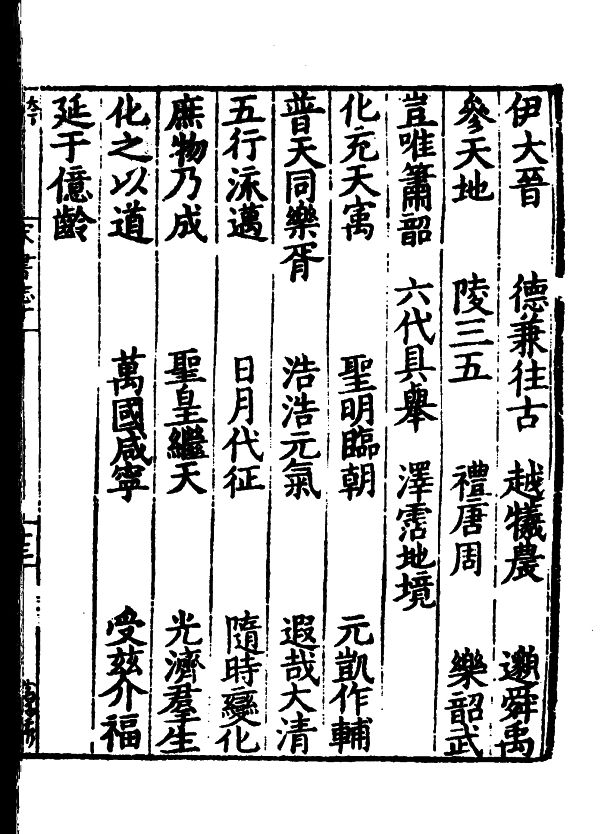 伊大晉　德兼往古　越犧農　邈舜禹
參天地　陵三五　禮唐周　樂韶武
豈唯簫韶　六代具舉　澤霑地境
化充天㝢　聖明臨朝　元凱作輔
普天同樂胥　浩浩元氣　遐哉大清
五行流邁　日月代征　隨時變化
庶物乃成　聖皇繼天　光濟羣生
化之以道　萬國咸寧　受茲介福
延于億齡